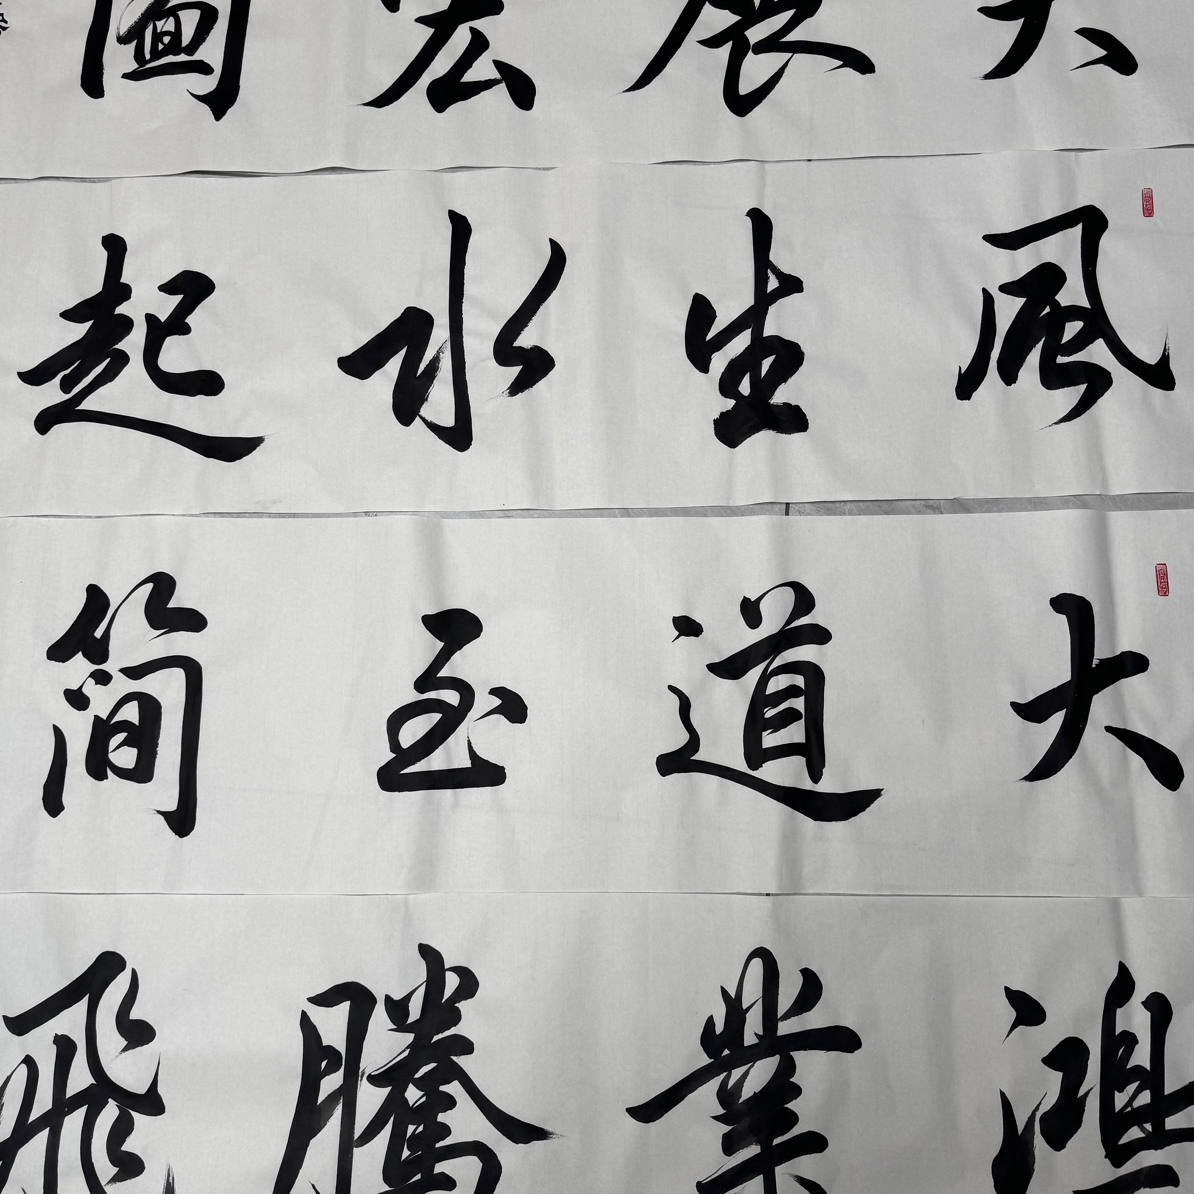 大展宏圖
風生水起
大道至簡
鴻業騰飛